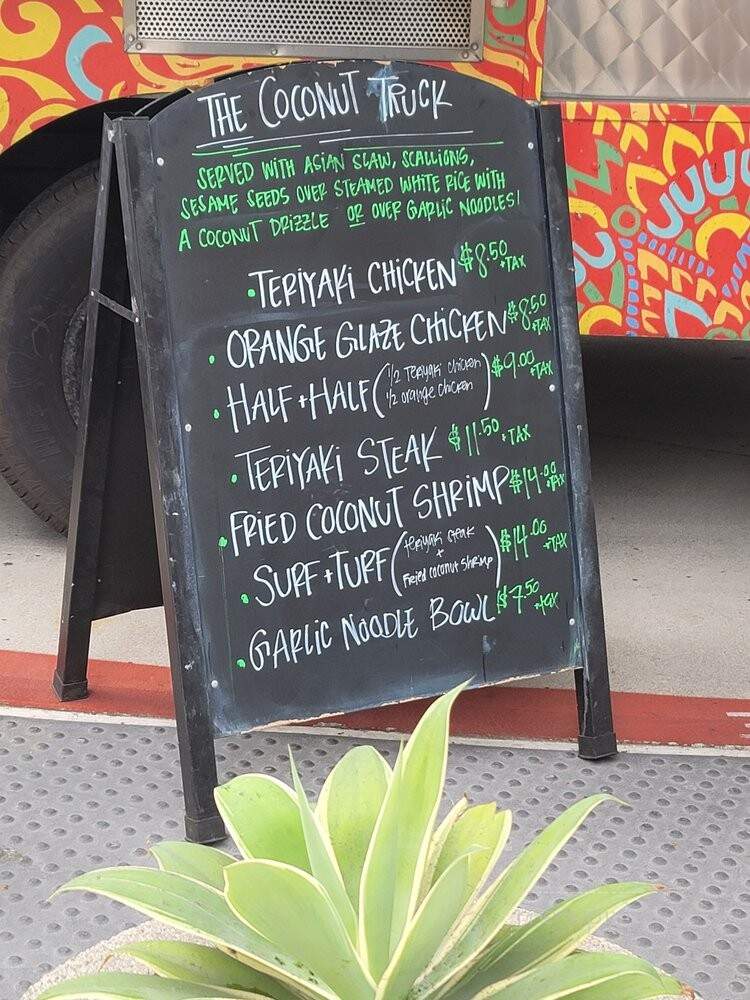 THE COCONUT TRUCK
SERVED WITH ASIAN SLAW, SCALLIONS,
SESAME SEEDS OVER STEAMED WHITE RICE WITH
A COCONUT DRIZZLE OR OVER GARLIC NOODLES!
• TERIYAKI CHICKEN $8.50 +TAX
• ORANGE GLAZE CHICKEN $8.50 +TAX
• HALF + HALF (1/2 Teriyaki Chicken 1/2 orange Chicken) $9.00 +TAX
• TERIYAKI STEAK $11.50 + TAX
• FRIED COCONUT SHRIMP $14.00 +TAX
• SURF + TURF (teriyaki steak + Fried coconut Shrimp) $14.00 +TAX
• GARLIC NOODLE BOWL $7.50 +TAX